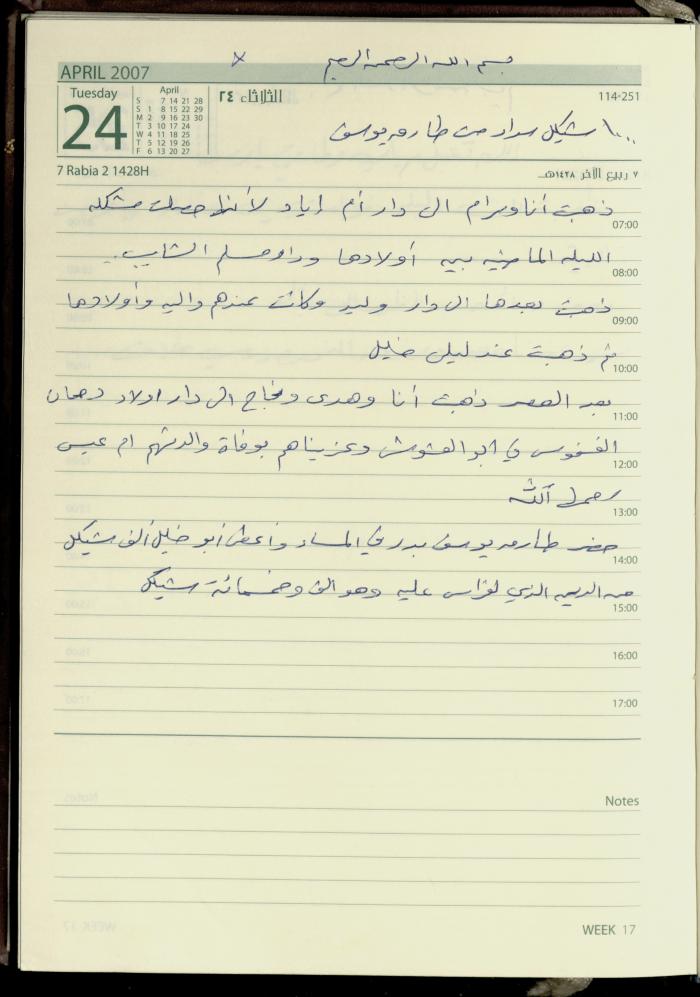 بسم الله الرحمن الرحيم
APRIL 2007
Tuesday
24
April
S 7 14 21 28
S 1 8 15 22 29
M 2 9 16 23 30
T 3 10 17 24
W 4 11 18 25
T 5 12 19 26
F 6 13 20 27
الثلاثاء ٢٤
114-251
١٠٠٠ شيكل سداد من طارق يوسف
7 Rabia 2 1428H
٧ ربيع الآخر ١٤٢٨هـ
ذهبت أنا ومرام الى دار أم إياد لأنه حصلت مشكله
07:00
الليله الماضيه بين أولادها ودار مسلم الشايب
08:00
ذهبت بعدها الى دار وليد وكانت عندهم واليه وأولادها
09:00
ثم ذهبت عند ليلى خليل
10:00
بعد العصر ذهبت أنا وهدى ونجاح الى دار اولاد دهمان
11:00
في ابو العشوش وعزيناهم بوفاة والدتهم ام عيسى
12:00
رحمها الله
13:00
حضر طارق يوسف بدر في المساء وأعطى أبو خليل ألف شيكل
14:00
من الدين الذي لفراس عليه وهو الف وخمسمائة شيكل
15:00
16:00
17:00
Notes
WEEK 17